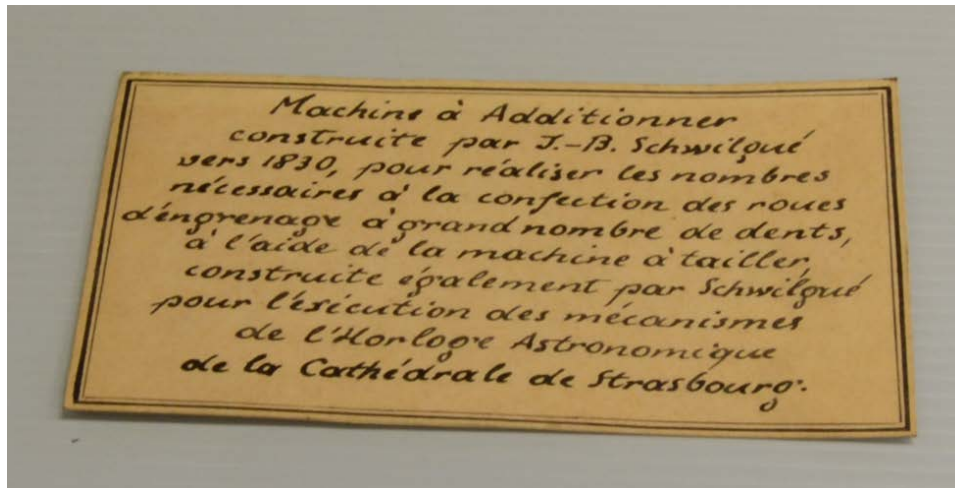 Machine à Additionner
construite par J.-B. Schwilgué
vers 1830, pour réaliser les nombres
nécessaires à la confection des roues
d'engrenage à grand nombre de dents,
à l'aide de la machine à tailler,
construite également par Schwilgué
pour l'exécution des mécanismes
de l'Horloge Astronomique
de la Cathédrale de Strasbourg.